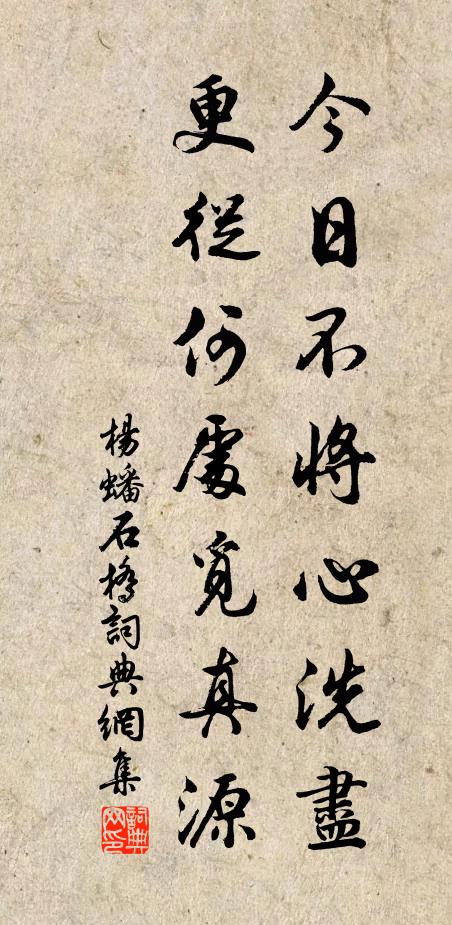 今日不將心洗盡
更從何處覓真源
楊蟠石橋詞典網集
詞典網印